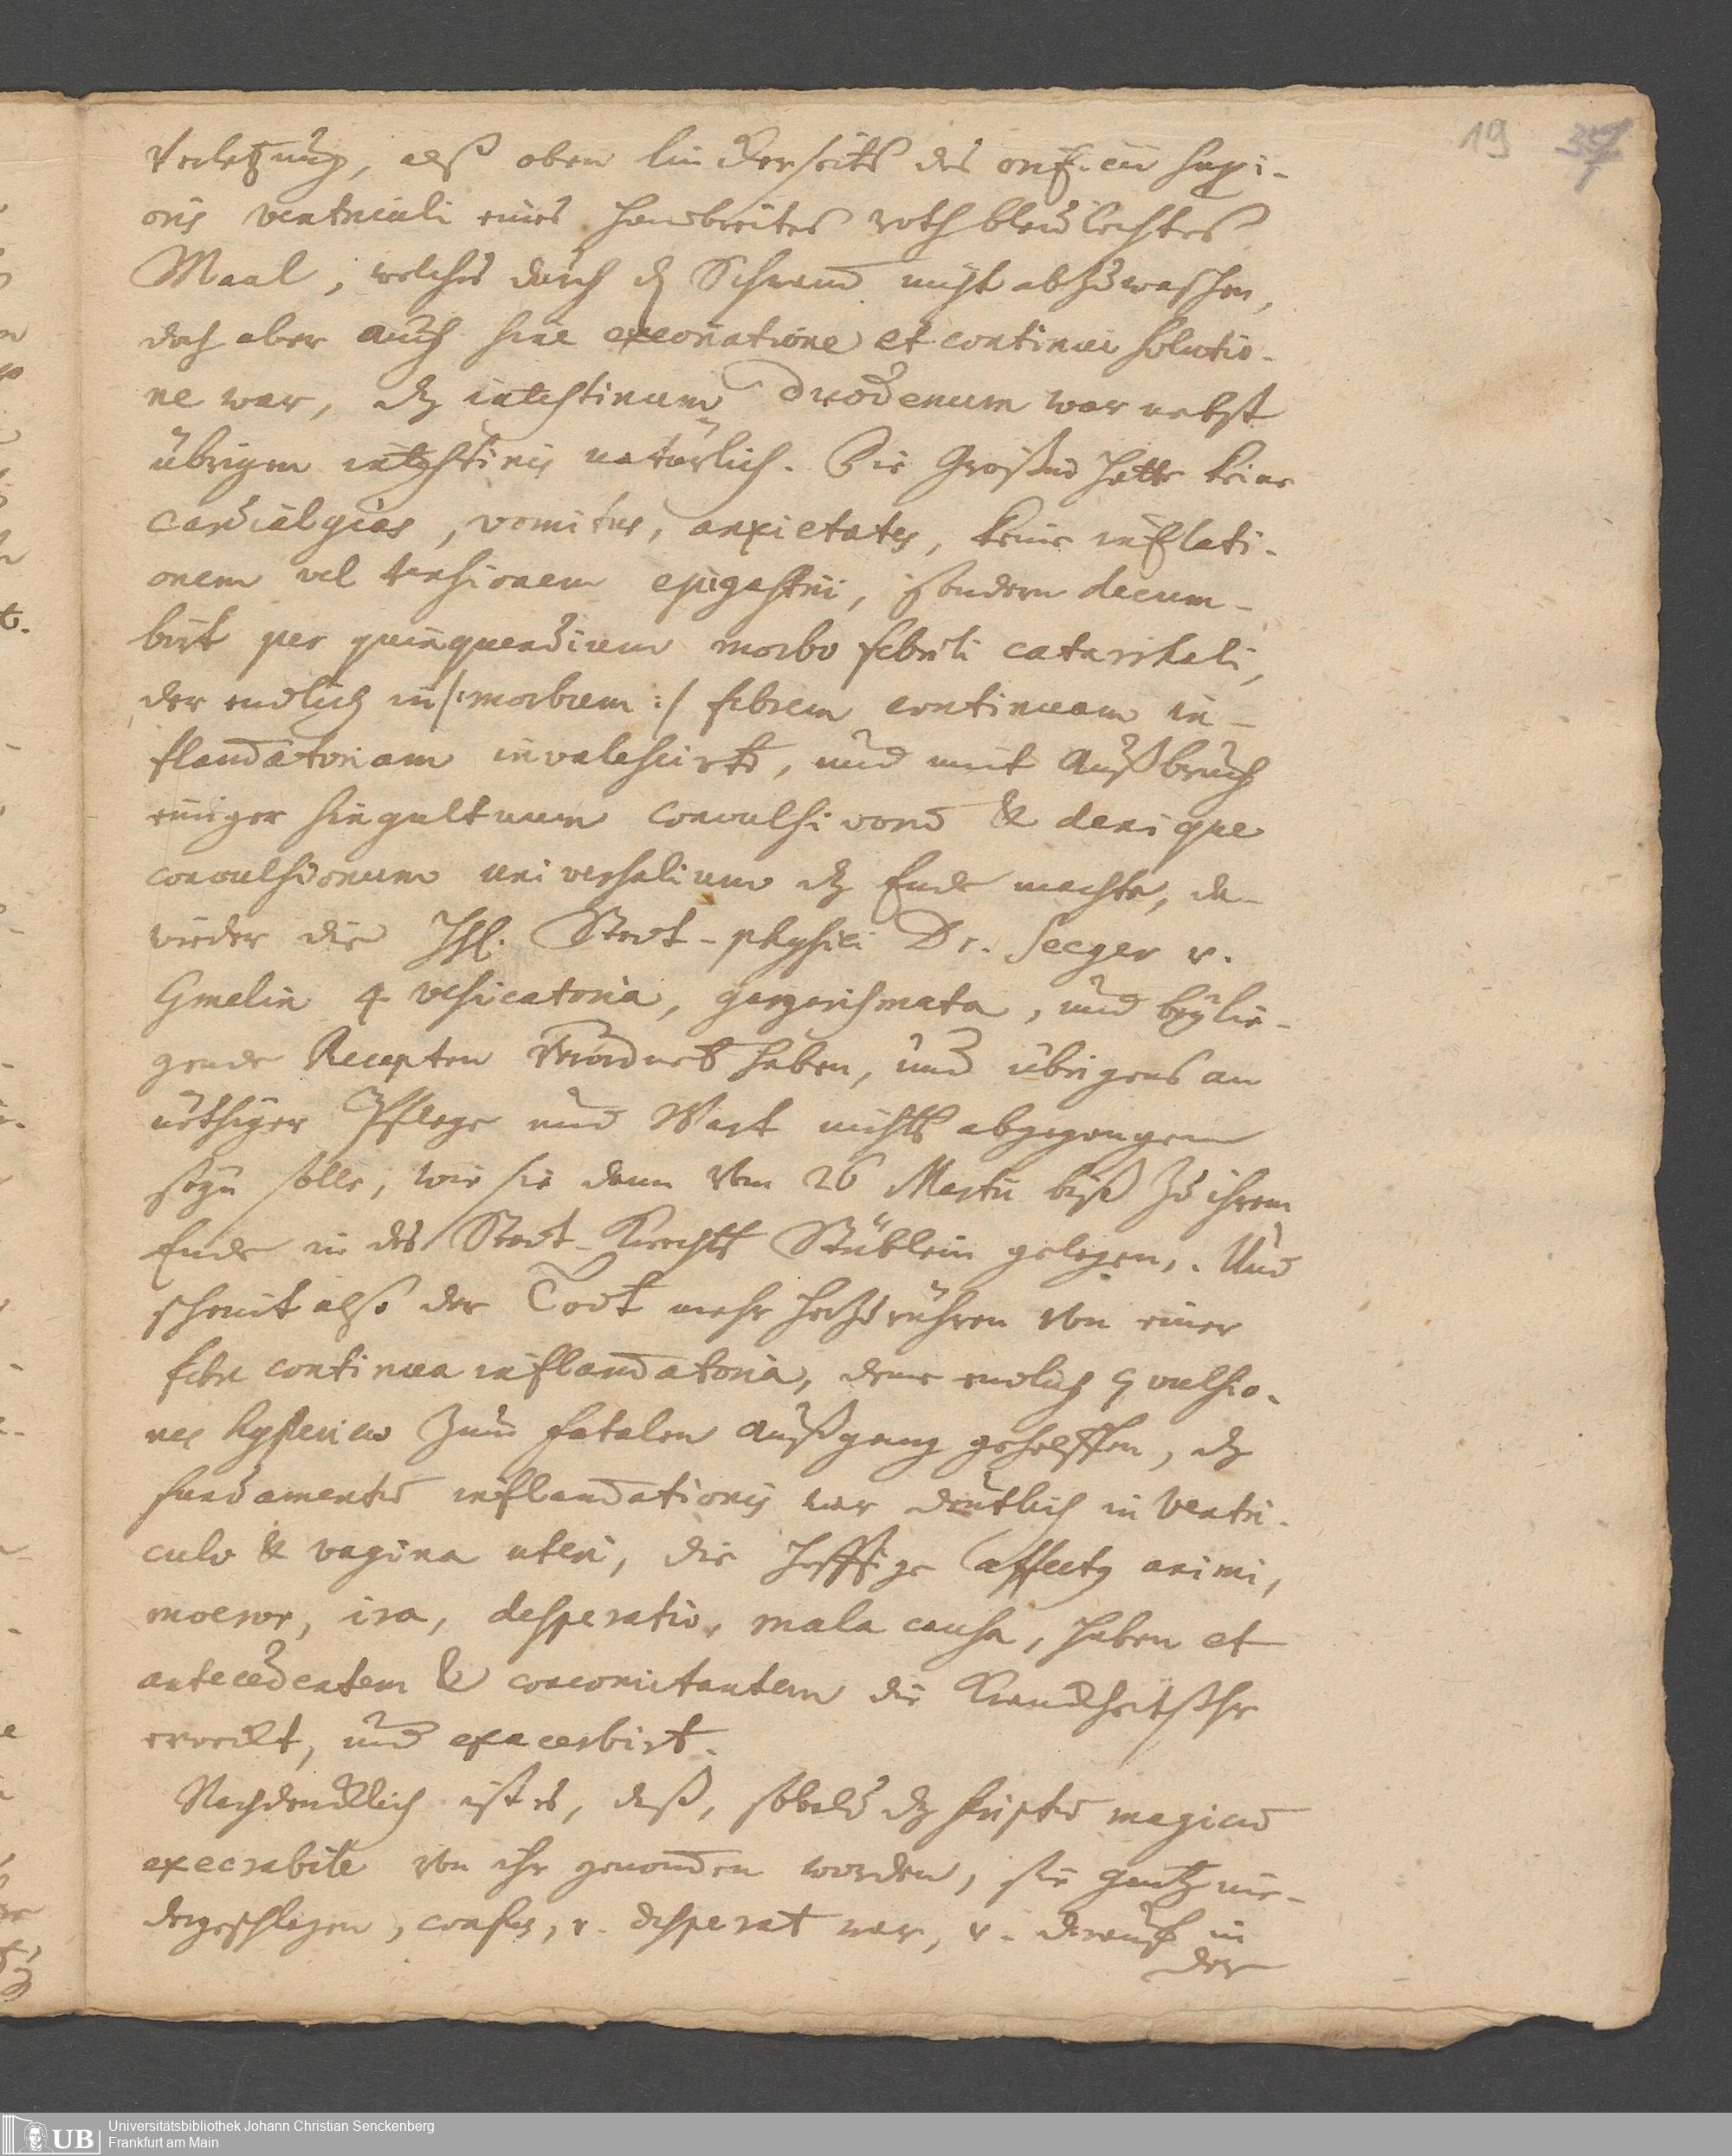 19 37
Verletzung, alß oben linckerseits des orificii supi-
oris ventriculi eines handbreites roth blaulechtes
Maal, welches durch dz Schwam nicht abzuwaschen,
doch aber auch sine excoriatione et continui solutio-
ne war, dz intestinum Duodenum war nebst
übrigen intestinis natürlich. Die Großin hatte keine
cardialgias, vomitus, anxietates, keine inflati-
onem vel tensionem epigastrii, sondern decum-
birt per quinquendium morbo febrili catarrhali,
der endlich in /: morbum :/ febrem continuam in-
flamatoriam invalescirte, und mit Außbruch
einiger singultuum convulsivorum & denique
convulsionum universalium dz Ende machte, da-
wieder die HH. Statt-physici Dr. Seeger u.
Gmelin 4 vesicatoria, gargarismata, und beylie-
gende Recepten verordnet haben, und übrigens an
nöthiger Pflege und Wart nichts abgegangen
seyn solle, wie sie dann vom 26 Martii biß zu ihrem
Ende in des Statt-Knechts Stüblein gelegen. Und
scheint also der Todt mehr herzurühren von einer
febre continua inflamatoria, deme endlich convulsio-
nes hystericae zum fatalen Außgang geholffen, dz
fundamentum inflamationis war deutlich in ventri-
culo & vagina uteri, die hefftige affectus animi,
moeror, ira, desperatio, mala causa, haben et
antecedentem & concomitantem die Kranckheit sehr
erweckt, und exacerbirt.
Nachdencklich ist es, daß, sobald dz scriptum magicum
execrabile von ihr genommen worden, sie gantz nie-
dergeschlagen, confus, u. desperat war, u. darauf in
der
Universitätsbibliothek Johann Christian Senckenberg
Frankfurt am Main
UB